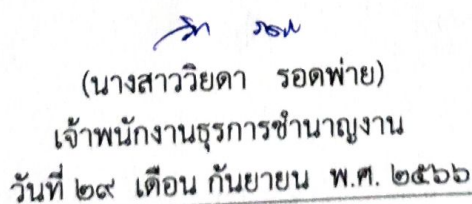 (นางสาววิยดา รอดพ่าย)
เจ้าพนักงานธุรการชำนาญงาน
วันที่ ๒๙ เดือน กันยายน พ.ศ. ๒๕๖๖